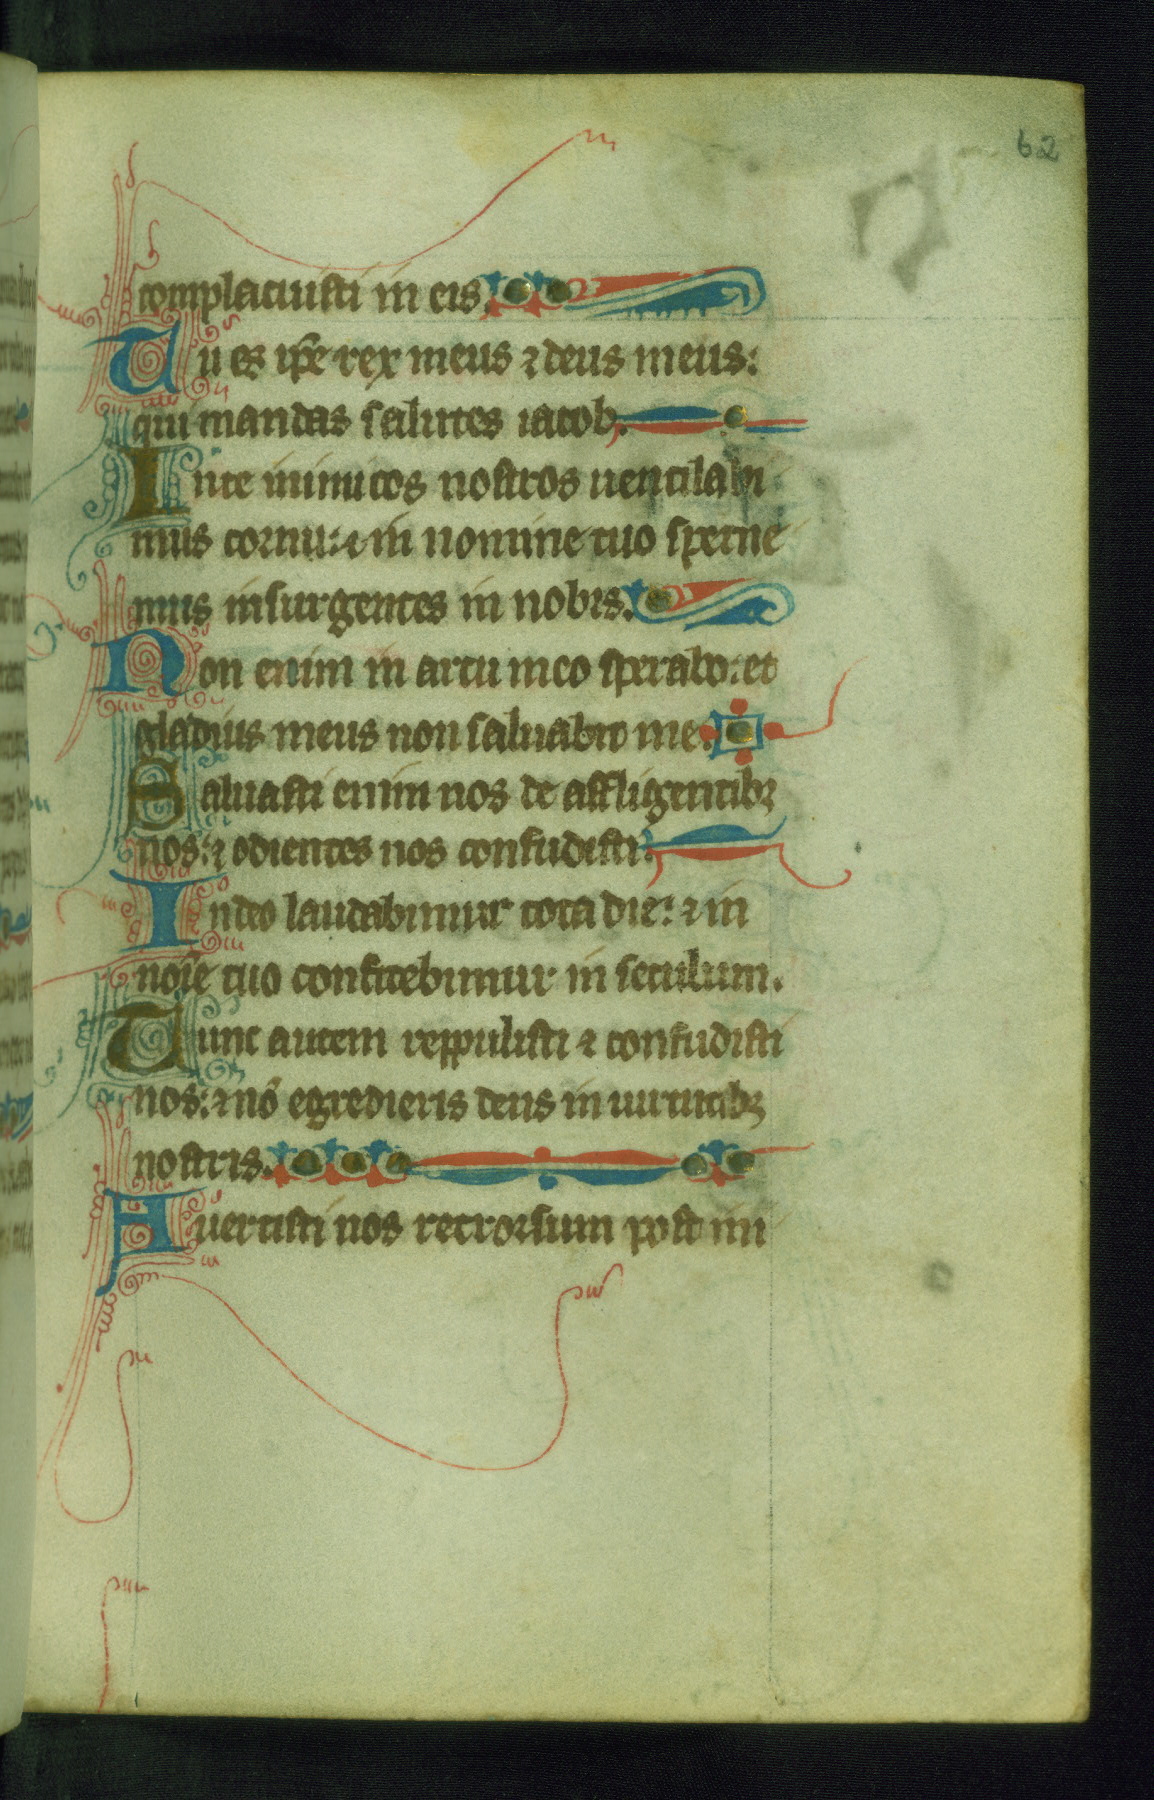 62
complacuisti in eis.
Tu es ip̃e rex meus ⁊ deus meus:
qui mandas salutes iacob.
In te inimicos nostros uentilabi
mus cornu: ⁊ in nomine tuo sperne
mus insurgentes in nobis.
Non enim in arcu meo sperabo: et
gladius meus non saluabit me.
Saluasti enim nos de affligentibꝫ
nos: ⁊ odientes nos confudisti.
In deo laudabimur tota die: ⁊ in
noīe tuo confitebimur in seculum.
Tunc autem reppulisti ⁊ confudisti
nos: ⁊ nō egredieris deus in uirtutibꝫ
nostris.
Auertisti nos retrorsum post ini